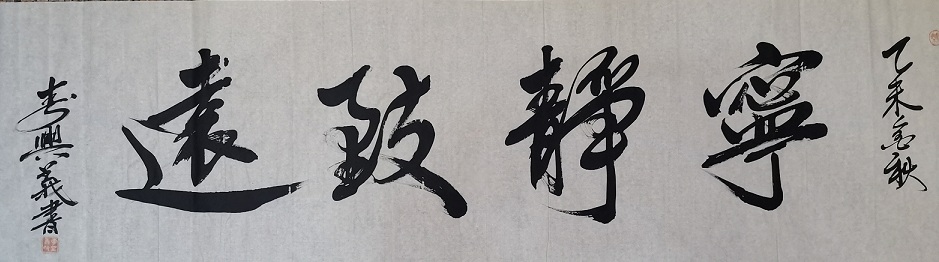 乙未金秋
寧靜致遠
壽興義書